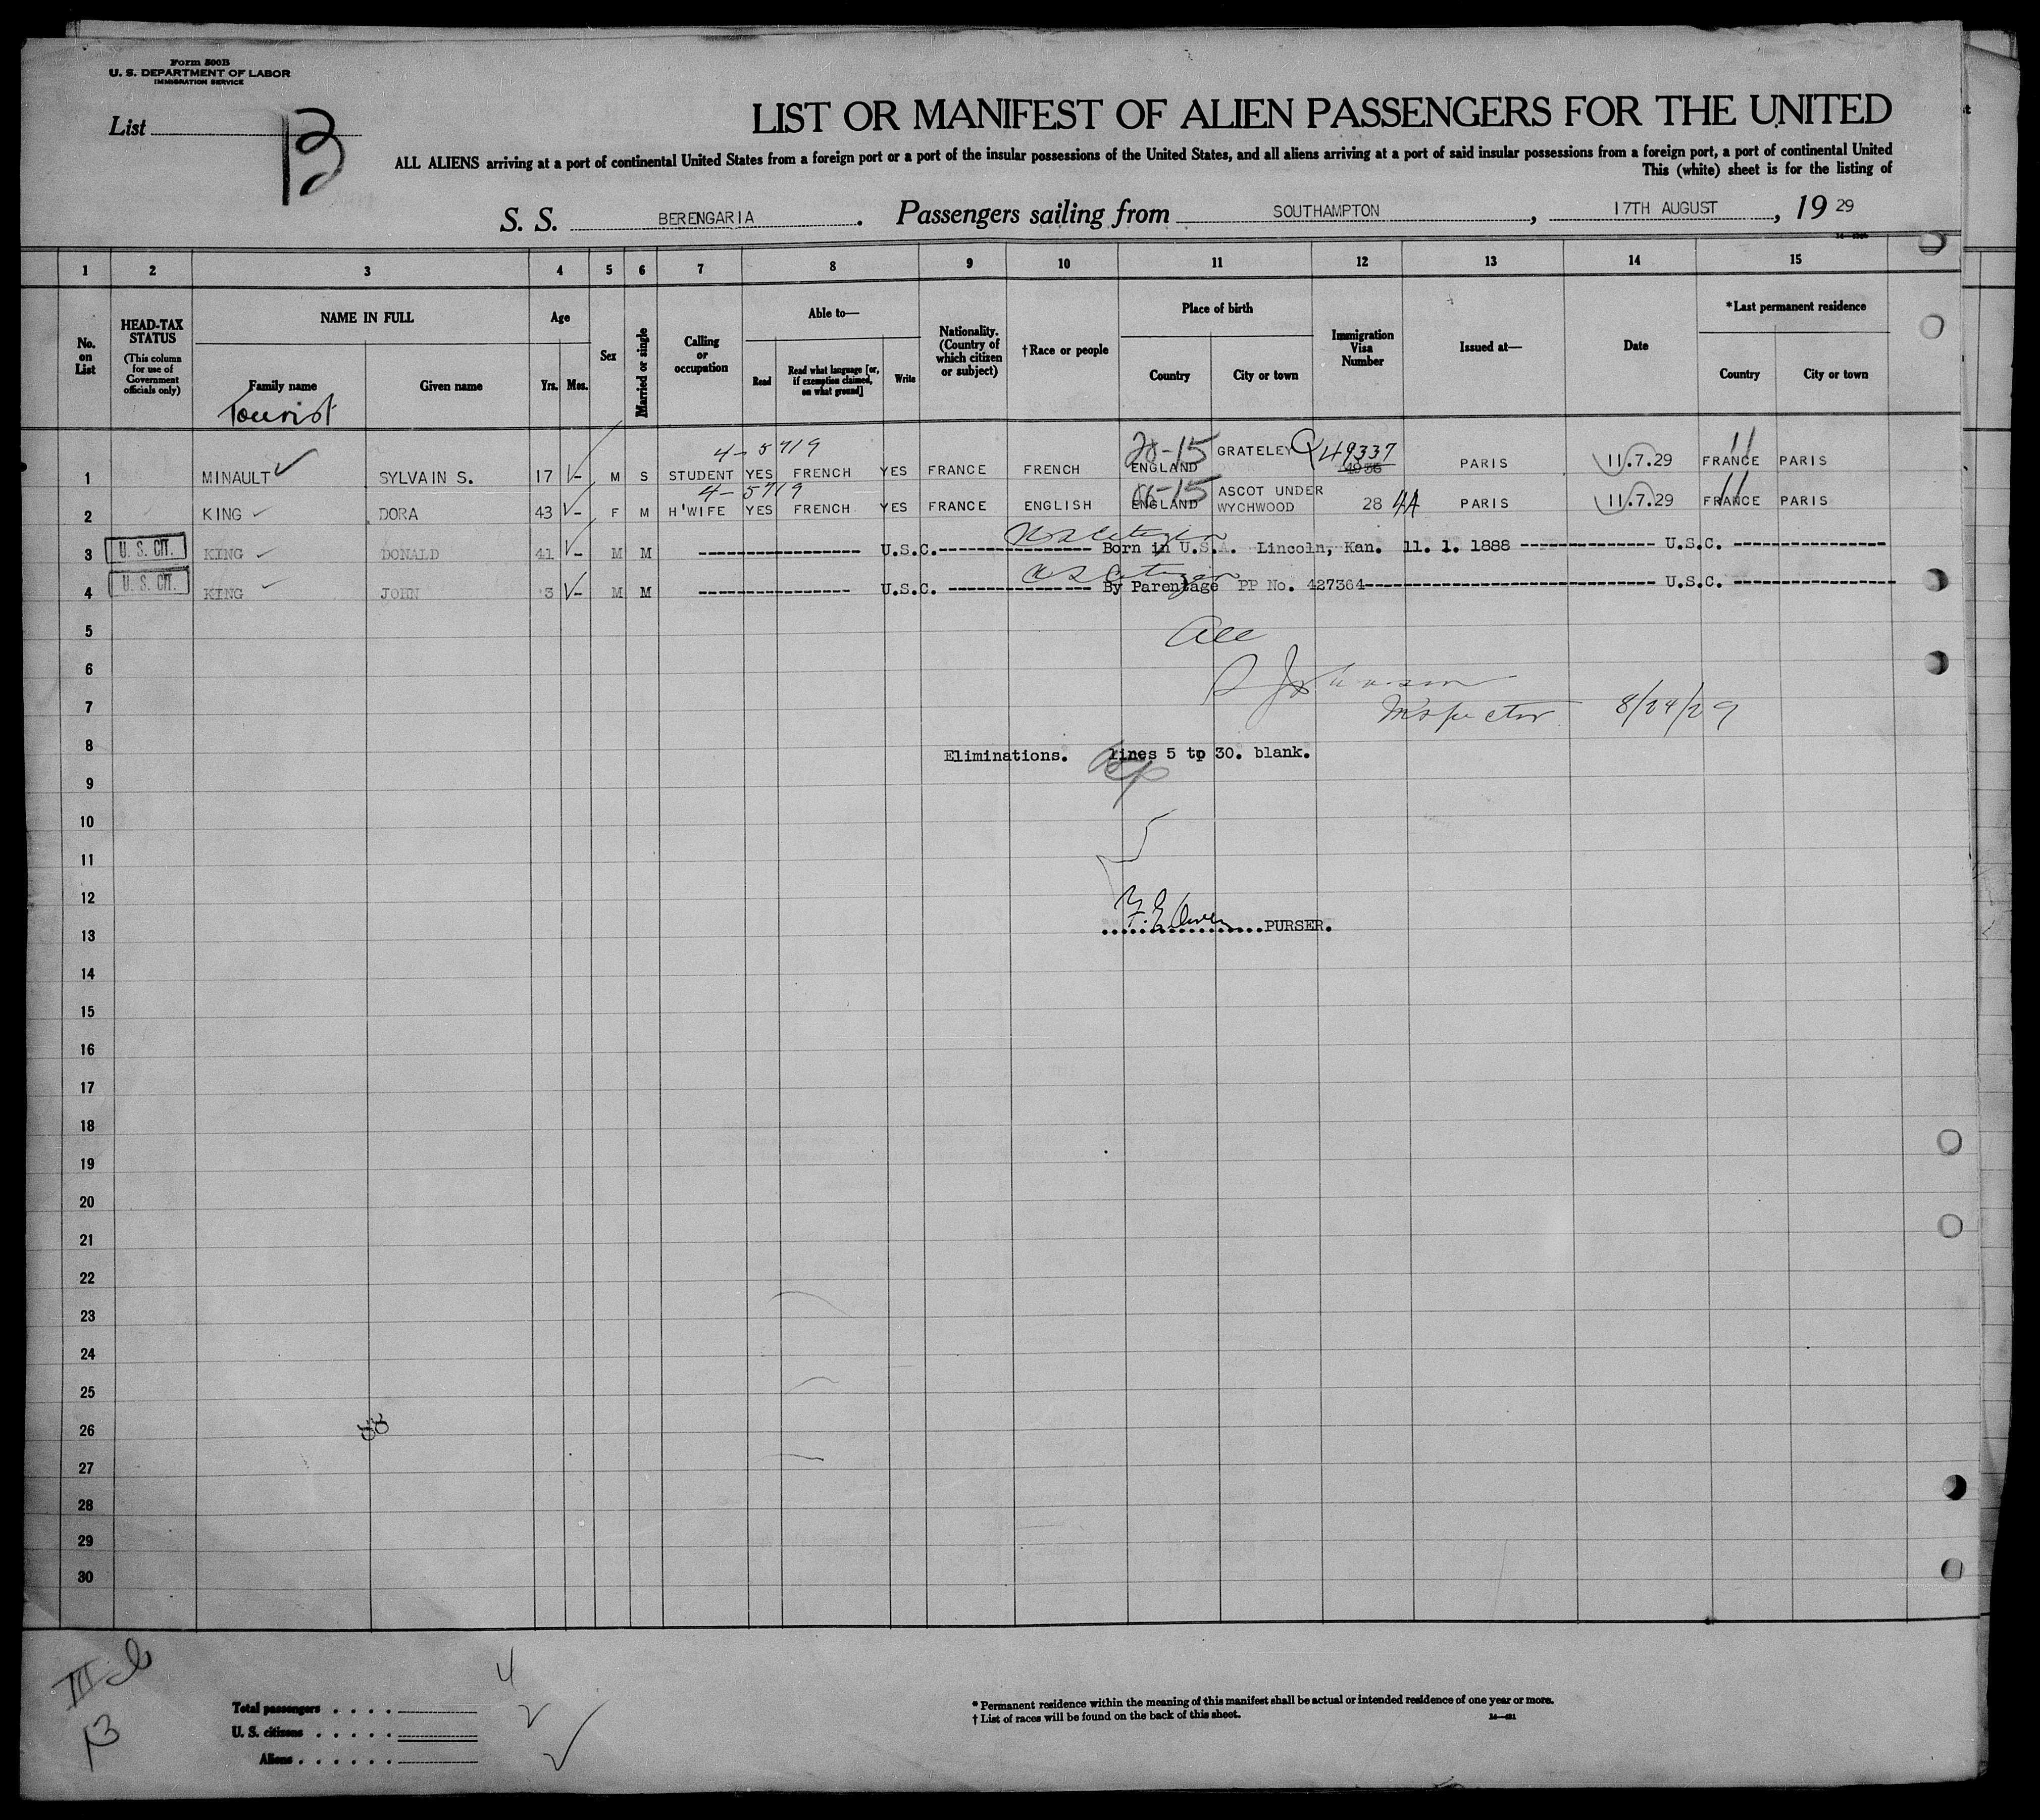 Form 500B
U. S. DEPARTMENT OF LABOR
IMMIGRATION SERVICE
List 13
LIST OR MANIFEST OF ALIEN PASSENGERS FOR THE UNITED
ALL ALIENS arriving at a port of continental United States from a foreign port or a port of the insular possessions of the United States, and all aliens arriving at a port of said insular possessions from a foreign port, a port of continental United
This (white) sheet is for the listing of
S. S. BERENGARIA. Passengers sailing from SOUTHAMPTON, 17TH AUGUST, 19 29
1 2 3 4 5 6 7 8 9 10 11 12 13 14 15
No. on List
HEAD-TAX STATUS (This column for use of Government officials only)
NAME IN FULL
Family name Given name
Tourist
Age
Yrs. Mos.
Sex
Married or single
Calling or occupation
Able to—
Read
Read what language [or, if exemption claimed, on what ground]
Write
Nationality. (Country of which citizen or subject)
†Race or people
Place of birth
Country City or town
Immigration Visa Number
Issued at—
Date
*Last permanent residence
Country City or town
4-5719 28-15 Q49337 11
1 MINAULT SYLVAIN S. 17 M S STUDENT YES FRENCH YES FRANCE FRENCH ENGLAND GRATELEY PARIS 11.7.29 FRANCE PARIS
4-5719 66-15 11
2 KING DORA 43 F M H'WIFE YES FRENCH YES FRANCE ENGLISH ENGLAND ASCOT UNDER WYCHWOOD 28 4A PARIS 11.7.29 FRANCE PARIS
US Citizen
3 U. S. CIT. KING DONALD 41 M M ---------- U.S.C.---------- Born in U.S.A. Lincoln, Kan. 11. 1. 1888 ---------- U.S.C. ----------
US Citizen
4 U. S. CIT. KING JOHN 3 M M ---------- U.S.C. ---------- By Parentage PP No. 427364---------- U.S.C. ----------
5
All
6
Johnson
7
Inspector 8/24/29
8
Eliminations. lines 5 to 30. blank.
9
10
11
12
F.E. Owen PURSER.
13
14
15
16
17
18
19
20
21
22
23
24
25
26
27
28
29
30
III
13
4
Total passengers . . . .
U. S. citizens . . . . .
Aliens . . . . . .
* Permanent residence within the meaning of this manifest shall be actual or intended residence of one year or more.
† List of races will be found on the back of this sheet.